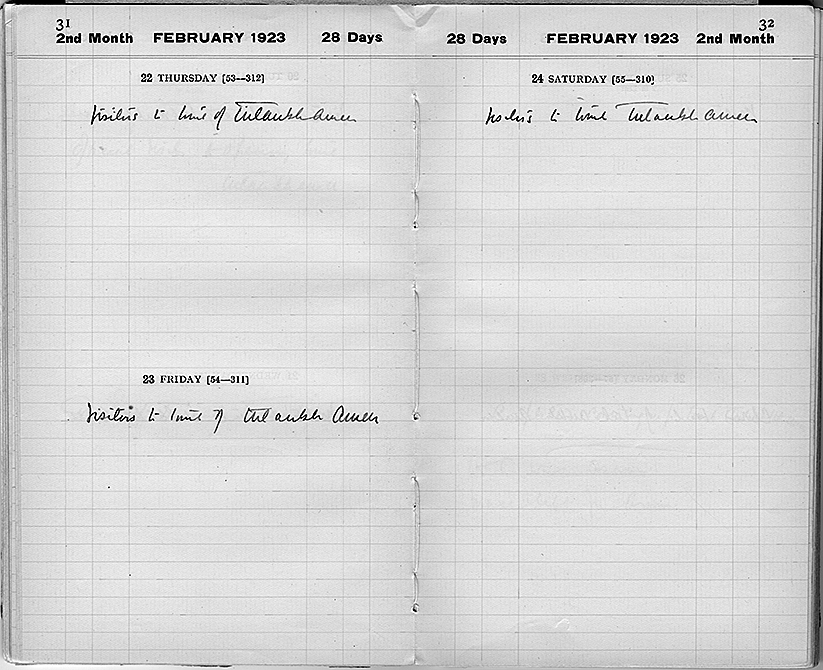 31
2nd Month FEBRUARY 1923 28 Days
22 THURSDAY [53—312]
Visitors to tomb of Tutankh.amen
23 FRIDAY [54—311]
Visitors to tomb of Tutankh Amen
32
28 Days FEBRUARY 1923 2nd Month
24 SATURDAY [55—310]
Visitors to tomb Tutankh amen